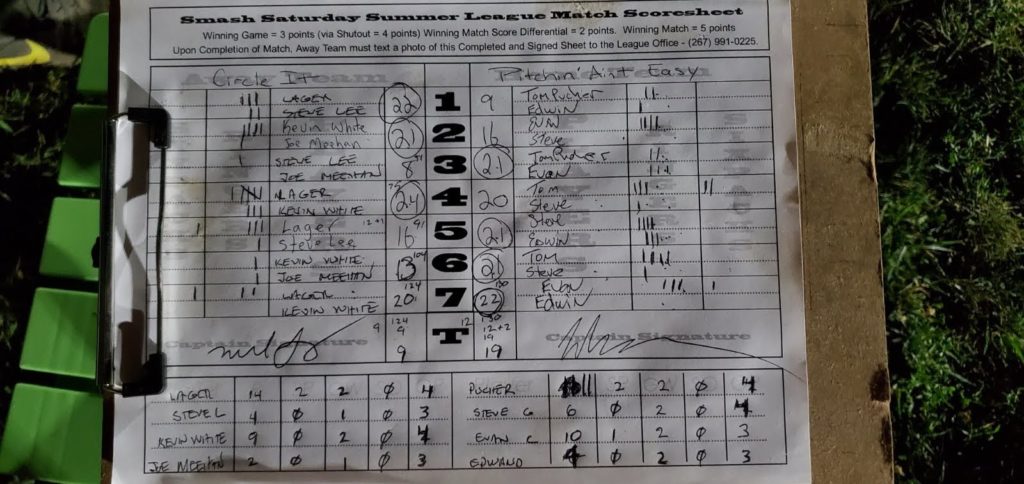 Smash Saturday Summer League Match Scoresheet
Winning Game = 3 points (via Shutout = 4 points) Winning Match Score Differential = 2 points. Winning Match = 5 points
Upon Completion of Match, Away Team must text a photo of this Completed and Signed Sheet to the League Office - (267) 991-0225.
Circle It Pitchin' Ain't Easy
LAGER 22 1 9 Tom Pucher
STEVE LEE EDWIN
Kevin White 21 2 16 EVAN
Joe Meehan Steve
STEVE LEE 8 3 21 Tom Pucher
JOE MEEHAN Evan
LAGER 24 4 20 Tom
KEVIN WHITE Steve
Lager 16 91 5 21 Steve
Steve Lee EDWIN
KEVIN WHITE 13 104 6 21 TOM
JOE MEEHAN Steve
LAGER 20 124 7 22 130 Evan
KEVIN WHITE Edwin
9 124 T 12 130
9 12+2
9 19
Captain Signature Captain Signature
LAGER 14 2 2 0 4 PUCHER 2 2 0 4
STEVE L 4 0 1 0 3 STEVE G 6 0 2 0 4
KEVIN WHITE 9 0 2 0 4 EVAN C 10 1 2 0 3
JOE MEEHAN 2 0 1 0 3 EDWARD 4 0 2 0 3